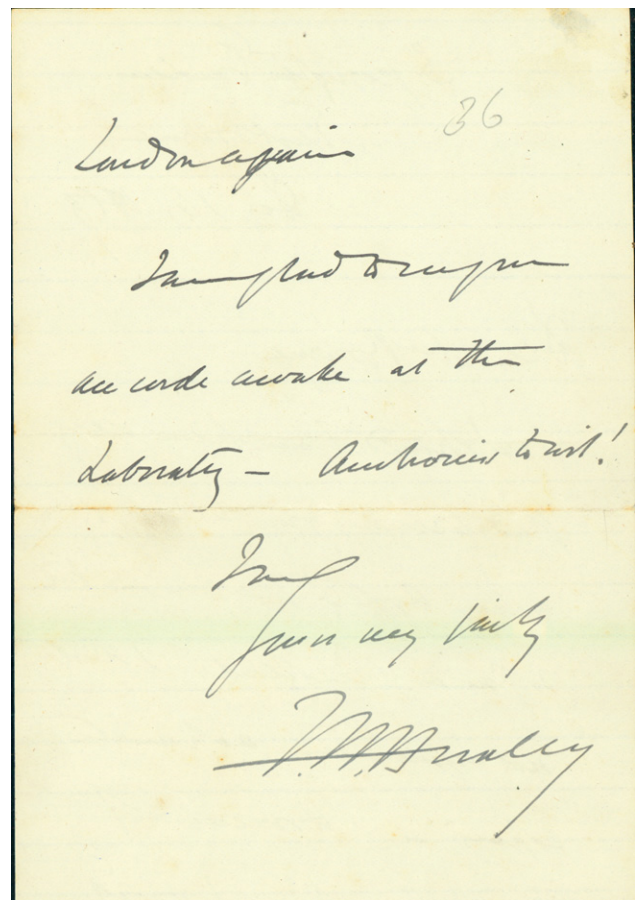 36
London again
I am glad to see you
are wide awake at the
Laboratory — Anchovies to wit!
I am
Yours very
T. H. Huxley